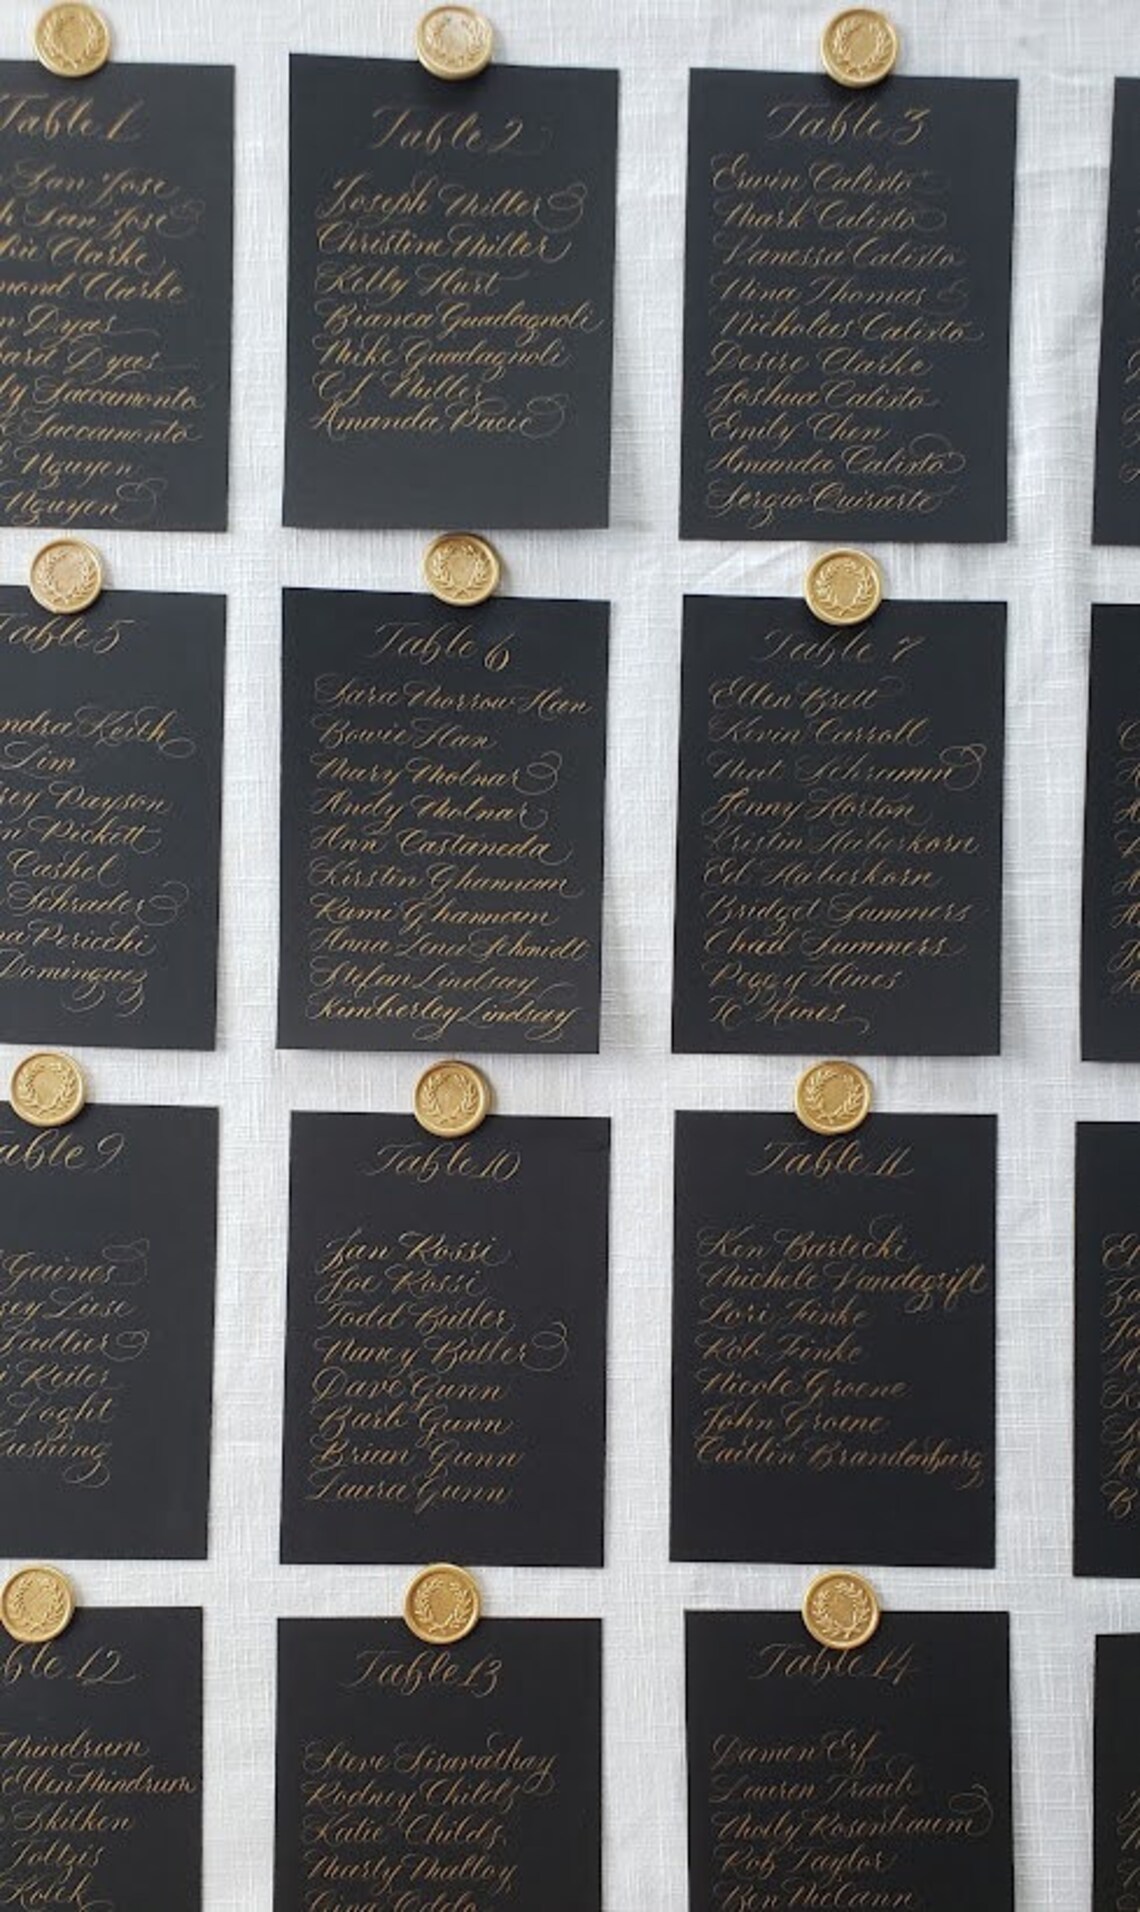 Table 1
San Jose
San Jose
Clarke
Clarke
Dyas
Dyas
Saccamonto
Saccamonto
Nguyen
Nguyen
Table 2
Joseph Miller
Christine Miller
Kelly Hurt
Bianca Guadagnoli
Mike Guadagnoli
CJ Miller
Amanda Pacic
Table 3
Erwin Calixto
Mark Calixto
Vanessa Calixto
Nina Thomas
Nicholas Calixto
Desire Clarke
Joshua Calixto
Emily Chen
Amanda Calixto
Sergio Quisarte
Table 5
Keith
Lim
Payson
Pickett
Cashel
Schrader
Pericchi
Dominguez
Table 6
Sara Morrow-Han
Bowie Han
Mary Molnar
Andy Molnar
Ann Castaneda
Kirstin Ghannam
Rami Ghannam
Anna Lenee Schmidt
Stefan Lindsay
Kimberley Lindsay
Table 7
Ellen Brett
Kevin Carroll
Schramm
Jenny Horton
Kristin Haberkorn
Ed Haberkorn
Bridget Summers
Chad Summers
Peggy Hines
Hines
Table 9
Gaines
Liese
Taillier
Reiter
Voght
Cushing
Table 10
Jan Rossi
Joe Rossi
Todd Butler
Nancy Butler
Dave Gunn
Barb Gunn
Brian Gunn
Laura Gunn
Table 11
Ken Bartecki
Michele Vandegrift
Lori Finke
Rob Finke
Nicole Groene
John Groene
Caitlin Brandenburg
12
Mindrum
Ellen Mindrum
Skilken
Toltzis
Kolek
Table 13
Steve Sisavathay
Rodney Childs
Katie Childs
Marty Malloy
Gina Oddo
Table 14
Damen Erf
Lauren Traub
Molly Rosenbaum
Rob Taylor
Ben McCann